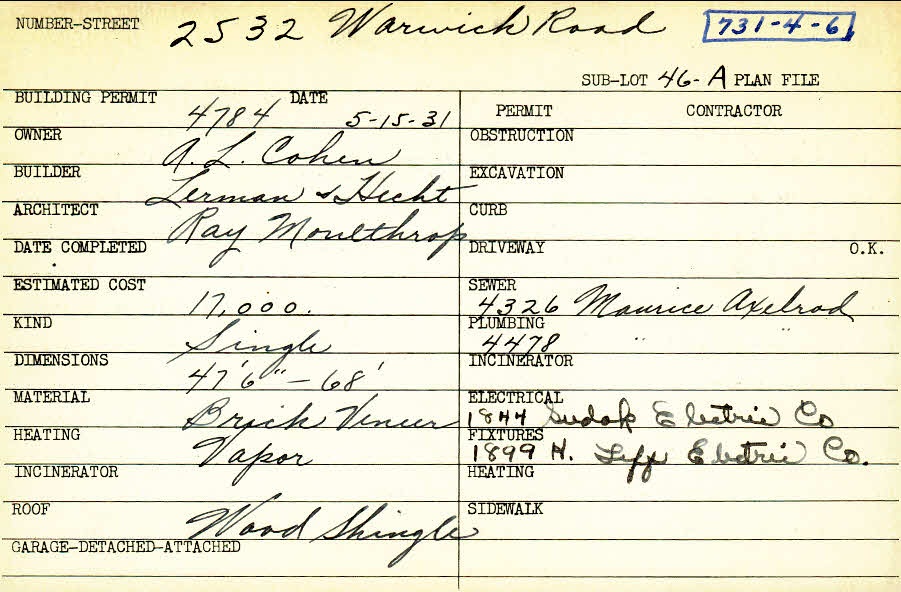 NUMBER-STREET 2532 Warwick Road 731-4-6
SUB-LOT 46-A PLAN FILE
BUILDING PERMIT 4784 DATE 5-15-31
OWNER A. L. Cohen
BUILDER Lerman & Hecht
ARCHITECT Ray Moulthrop
DATE COMPLETED
ESTIMATED COST 17,000.
KIND Single
DIMENSIONS 47'6" – 68'
MATERIAL Brick Veneer
HEATING Vapor
INCINERATOR
ROOF Wood Shingle
GARAGE-DETACHED-ATTACHED
PERMIT CONTRACTOR
OBSTRUCTION
EXCAVATION
CURB
DRIVEWAY O.K.
SEWER 4326 Maurice Axelrod
PLUMBING 4478 " "
INCINERATOR
ELECTRICAL 1844 Electric Co
FIXTURES 1899 H. Electric Co.
HEATING
SIDEWALK